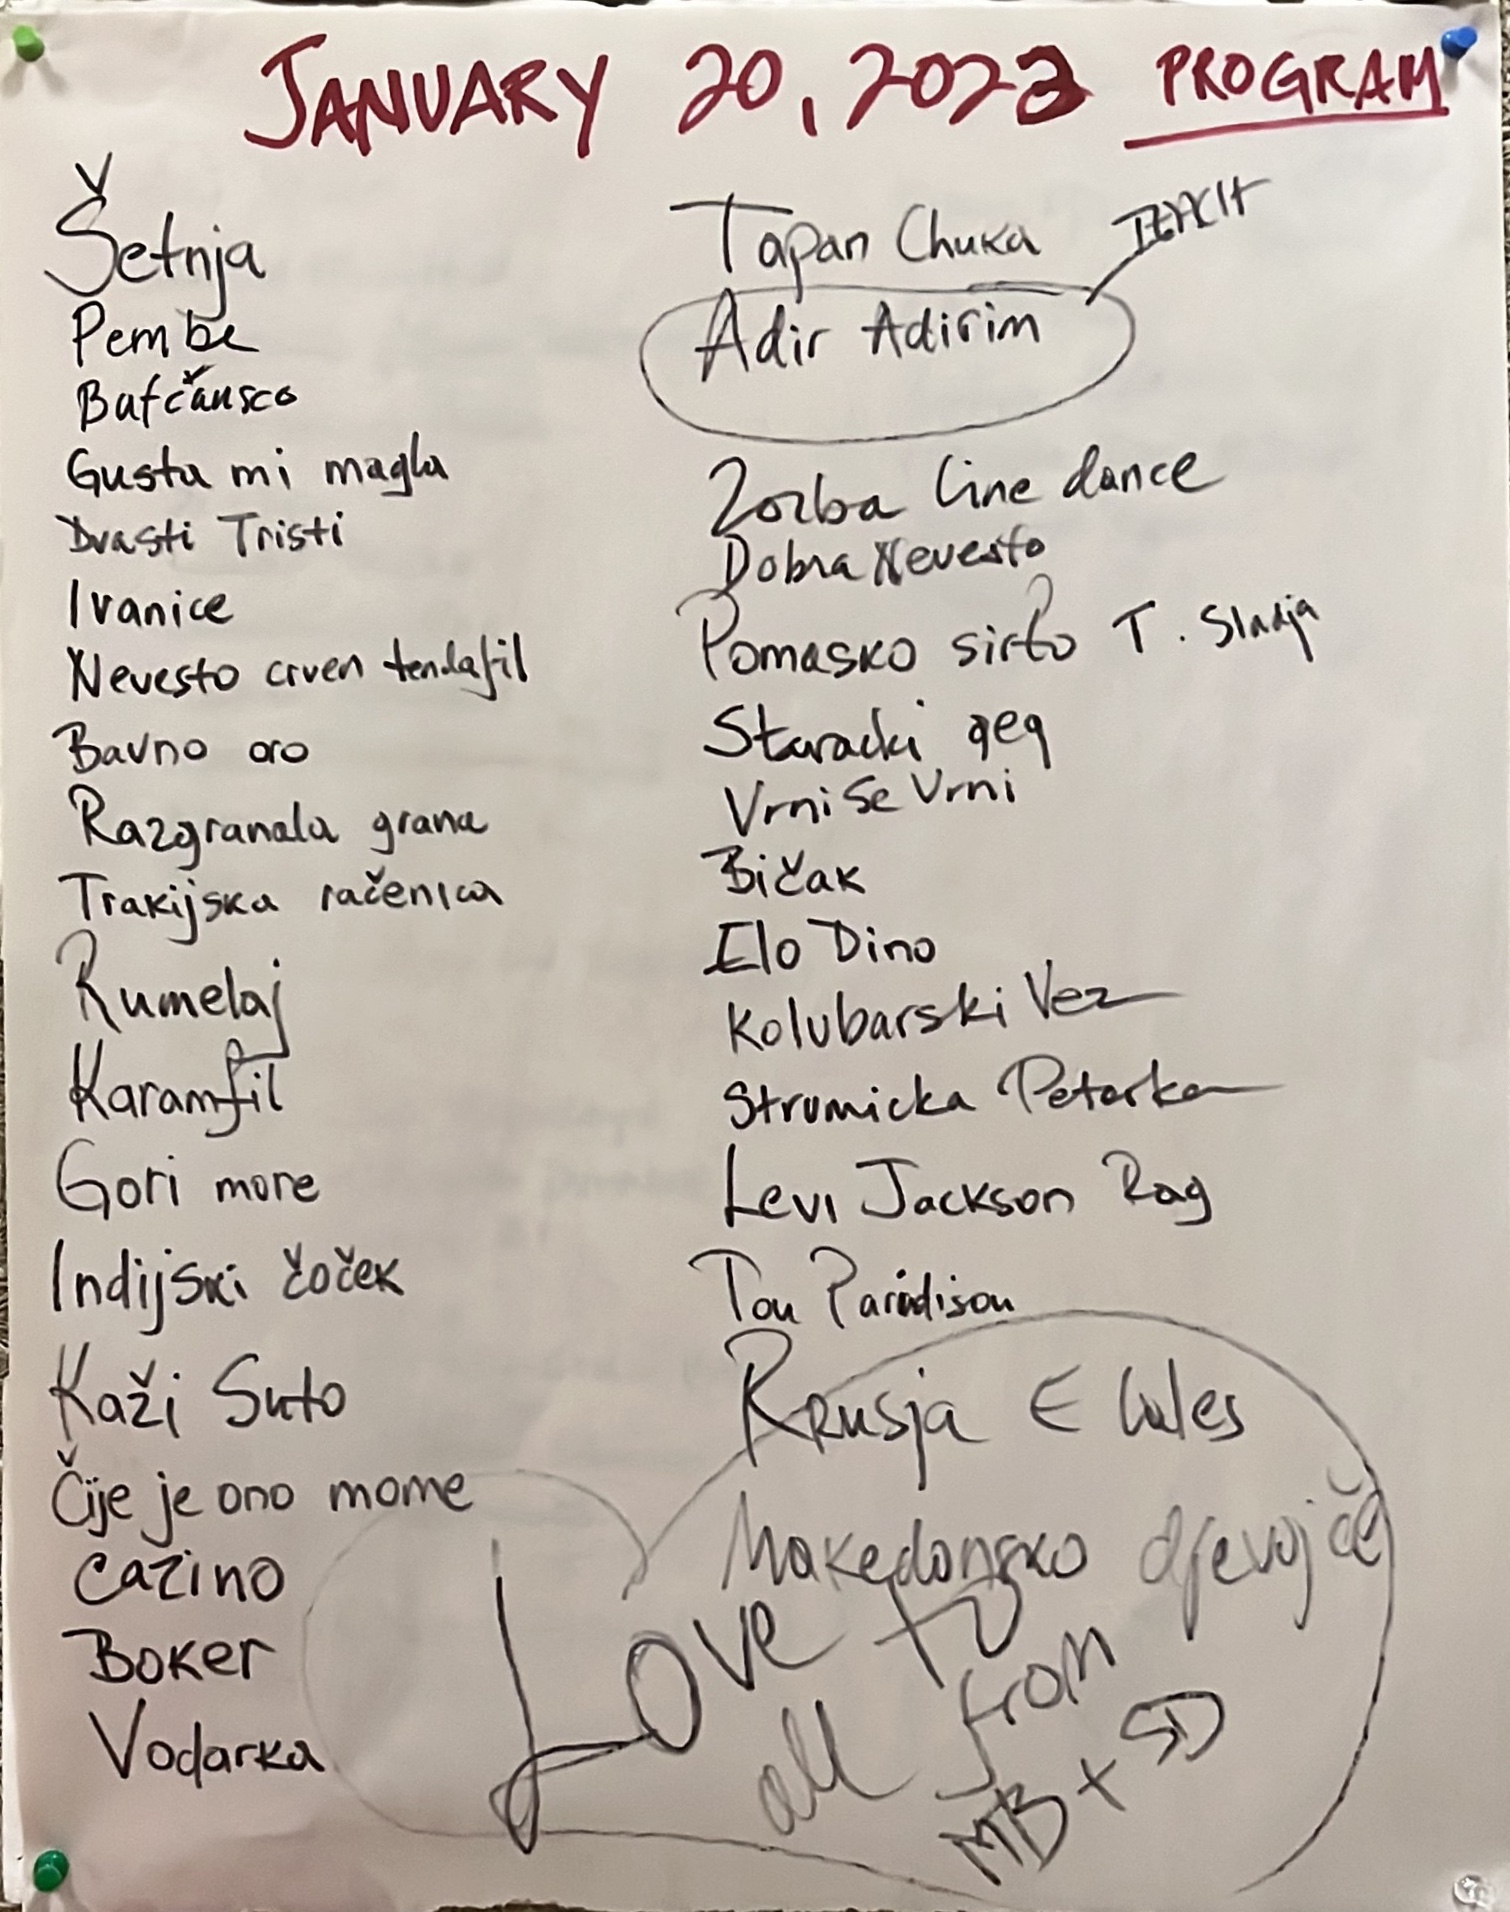 JANUARY 20, 2023 PROGRAM
Šetnja
Pembe
Bufčansco
Gusta mi magla
Dvasti Tristi
Ivanice
Nevesto crven tendafil
Bavno oro
Razgranala grana
Trakijska račenica
Rumelaj
Karamfil
Gori more
Indijski čoček
Kaži Suto
Čije je ono mome
Cazino
Boker
Vodarka
Tapan Chuka
TEACH
Adir Adirim
Zorba line dance
Dobra Nevesto
Pomasko sirto T. Sladja
Staracki geg
Vrni Se Vrni
Bičak
Elo Dino
Kolubarski Vez
Strumicka Petorka
Levi Jackson Rag
Tou Paradisou
Krusja E Lules
Makedonsko djevojče
Love to
all from
MB + SD